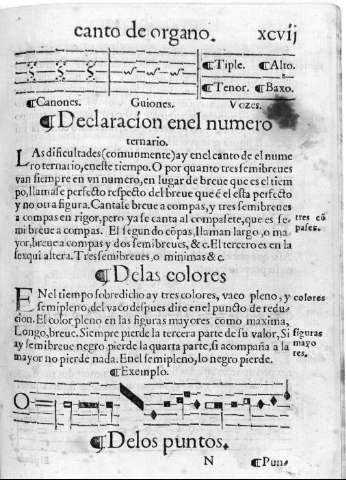 canto de organo. xcvij
¶Tiple. ¶Alto.
¶Tenor. ¶Baxo.
¶Canones. Guiones. Vozes.
¶Declaracion enel numero
ternario.
LAs dificultades (comunmente) ay en el canto de el nume
ro ternario, en este tiempo. O por quanto tres semibreues
van siempre en vn numero, en lugar de breue que es el tiem
po, llamase perfecto respecto del breue que é el esta perfecto
y no otra figura. Cantase breue a compas, y tres semibreues
a compas en rigor, pero ya se canta al compasete, que es se- tres cō
mi breue a compas. El segundo cōpas, llaman largo, o ma pases.
yor, breue a compas y dos semibreues, & c. El tercero es en la
sexqui altera. Tres semibreues, o minimas & c.
¶Delas colores
ENel tiempo sobredicho ay tres colores, vaco pleno, y colores
semipleno, del vaco despues dire en el puncto de redu-
cion. El color pleno en las figuras mayores como maxima,
Longo, breue. Siempre pierde la tercera parte de su valor, Si figuras
ay semibreue negro pierde la quarta parte, si acompaña a la mayo
mayor no pierde nada. En el semipleno, lo negro pierde. res.
¶Exemplo.
¶Delos puntos.
N ¶Pun-